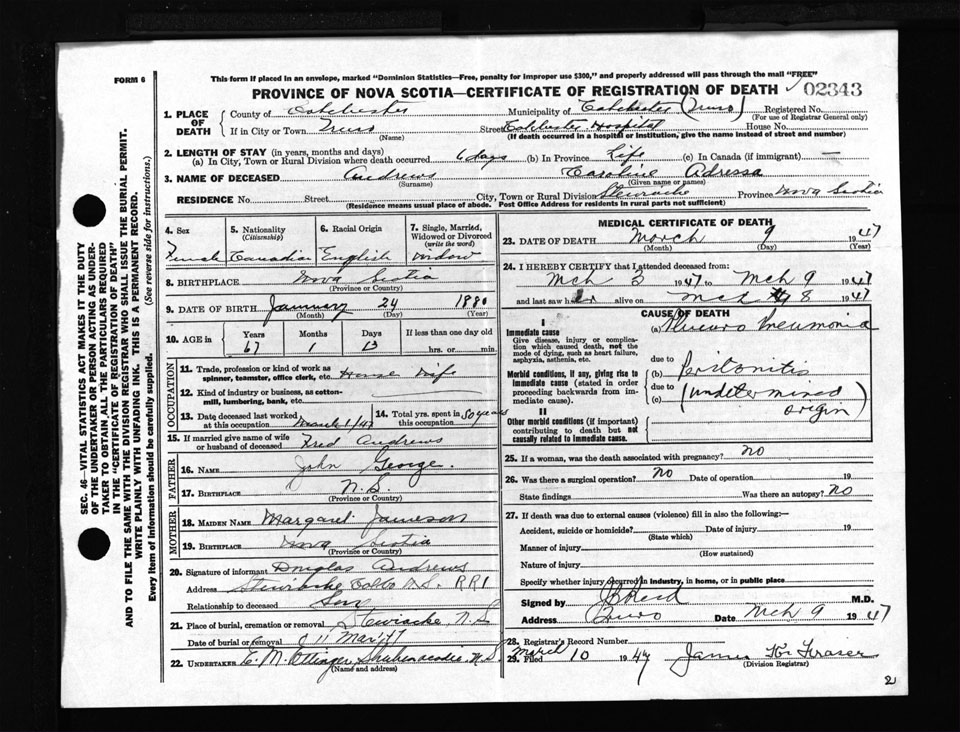 FORM 6
This form if placed in an envelope, marked "Dominion Statistics—Free, penalty for improper use $300," and properly addressed will pass through the mail "FREE"
PROVINCE OF NOVA SCOTIA—CERTIFICATE OF REGISTRATION OF DEATH 02343
SEC. 46—VITAL STATISTICS ACT MAKES IT THE DUTY
OF THE UNDERTAKER OR PERSON ACTING AS UNDER-
TAKER TO OBTAIN ALL THE PARTICULARS REQUIRED
IN THE "CERTIFICATE OF REGISTRATION OF DEATH"
AND TO FILE THE SAME WITH THE DIVISION REGISTRAR WHO SHALL ISSUE THE BURIAL PERMIT.
WRITE PLAINLY WITH UNFADING INK. THIS IS A PERMANENT RECORD.
Every item of information should be carefully supplied. (See reverse side for instructions.)
1. PLACE OF DEATH
County of Colchester Municipality of Colchester (Truro) Registered No.
(For use of Registrar General only)
If in City or Town Truro Street Colchester Hospital House No.
(Name) (If death occurred in a hospital or institution, give the name instead of street and number)
2. LENGTH OF STAY (in years, months and days)
(a) In City, Town or Rural Division where death occurred 6 days (b) In Province Life (c) In Canada (if immigrant) —
3. NAME OF DECEASED Andrews Caroline Adressa
(Surname) (Given name or names)
RESIDENCE No. Street City, Town or Rural Division Stewiacke Province Nova Scotia
(Residence means usual place of abode. Post Office Address for residents in rural parts not sufficient)
4. Sex 5. Nationality (Citizenship) 6. Racial Origin 7. Single, Married, Widowed or Divorced (write the word)
Female Canadian English widow
8. BIRTHPLACE Nova Scotia
(Province or Country)
9. DATE OF BIRTH January 24 1880
(Month) (Day) (Year)
10. AGE in Years Months Days If less than one day old
67 1 13 hrs. or min.
OCCUPATION
11. Trade, profession or kind of work as
spinner, teamster, office clerk, etc. House Wife
12. Kind of industry or business, as cotton-
mill, lumbering, bank, etc.
13. Date deceased last worked at this occupation March 1/47 14. Total yrs. spent in this occupation 50 years
15. If married give name of wife or husband of deceased Fred Andrews
FATHER
16. Name John George.
17. Birthplace N.S.
(Province or Country)
MOTHER
18. Maiden Name Margaret Jameson
19. Birthplace Nova Scotia
(Province or Country)
20. Signature of informant Douglas Andrews
Address Stewiacke Colto N.S. RR1
Relationship to deceased Son
21. Place of burial, cremation or removal Stewiacke, N.S
Date of burial or removal 11 Mar/47
22. UNDERTAKER E. M. Ettinger Shubenacadie, N.S.
(Name and address)
MEDICAL CERTIFICATE OF DEATH
23. DATE OF DEATH March 9 1947
(Month) (Day) (Year)
24. I HEREBY CERTIFY that I attended deceased from:
Mch 3 1947 to Mch 9 1947
and last saw her alive on Mch 8 1947
CAUSE OF DEATH
I
Immediate cause
Give disease, injury or complication which caused death, not the mode of dying, such as heart failure, asphyxia, asthenia, etc.
(a) Pleuro Pneumonia
due to
Morbid conditions, if any, giving rise to immediate cause (stated in order proceeding backwards from immediate cause).
(b) Peritonitis
due to
(c) (undetermined origin)
II
Other morbid conditions (if important) contributing to death but not causally related to immediate cause.
25. If a woman, was the death associated with pregnancy? no
26. Was there a surgical operation? no Date of operation 19
State findings Was there an autopsy? no
27. If death was due to external causes (violence) fill in also the following:—
Accident, suicide or homicide? Date of injury 19
(State which)
Manner of injury
(How sustained)
Nature of injury
Specify whether injury occurred in industry, in home, or in public place
Signed by Reid M.D.
Address Truro Date Mch 9 1947
28. Registrar's Record Number
29. Filed March 10 1947 James K. Fraser
(Division Registrar)
2